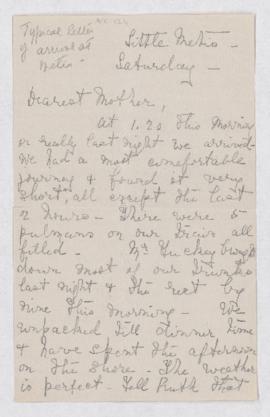 Typical letter
of arrival at
Metis
Little Metis -
Saturday -
Dearest Mother,
At 1.20 this morning
or really last night we arrived.
We had a most comfortable
journey & found it very
short, all except the last
2 hours - There were 5
pulmans on our train all
filled - Mr brought
down most of our trunks
last night & the rest by
nine this morning - We
unpacked till dinner time
& have spent the afternoon
on the shore - The weather
is perfect - Tell Ruth that